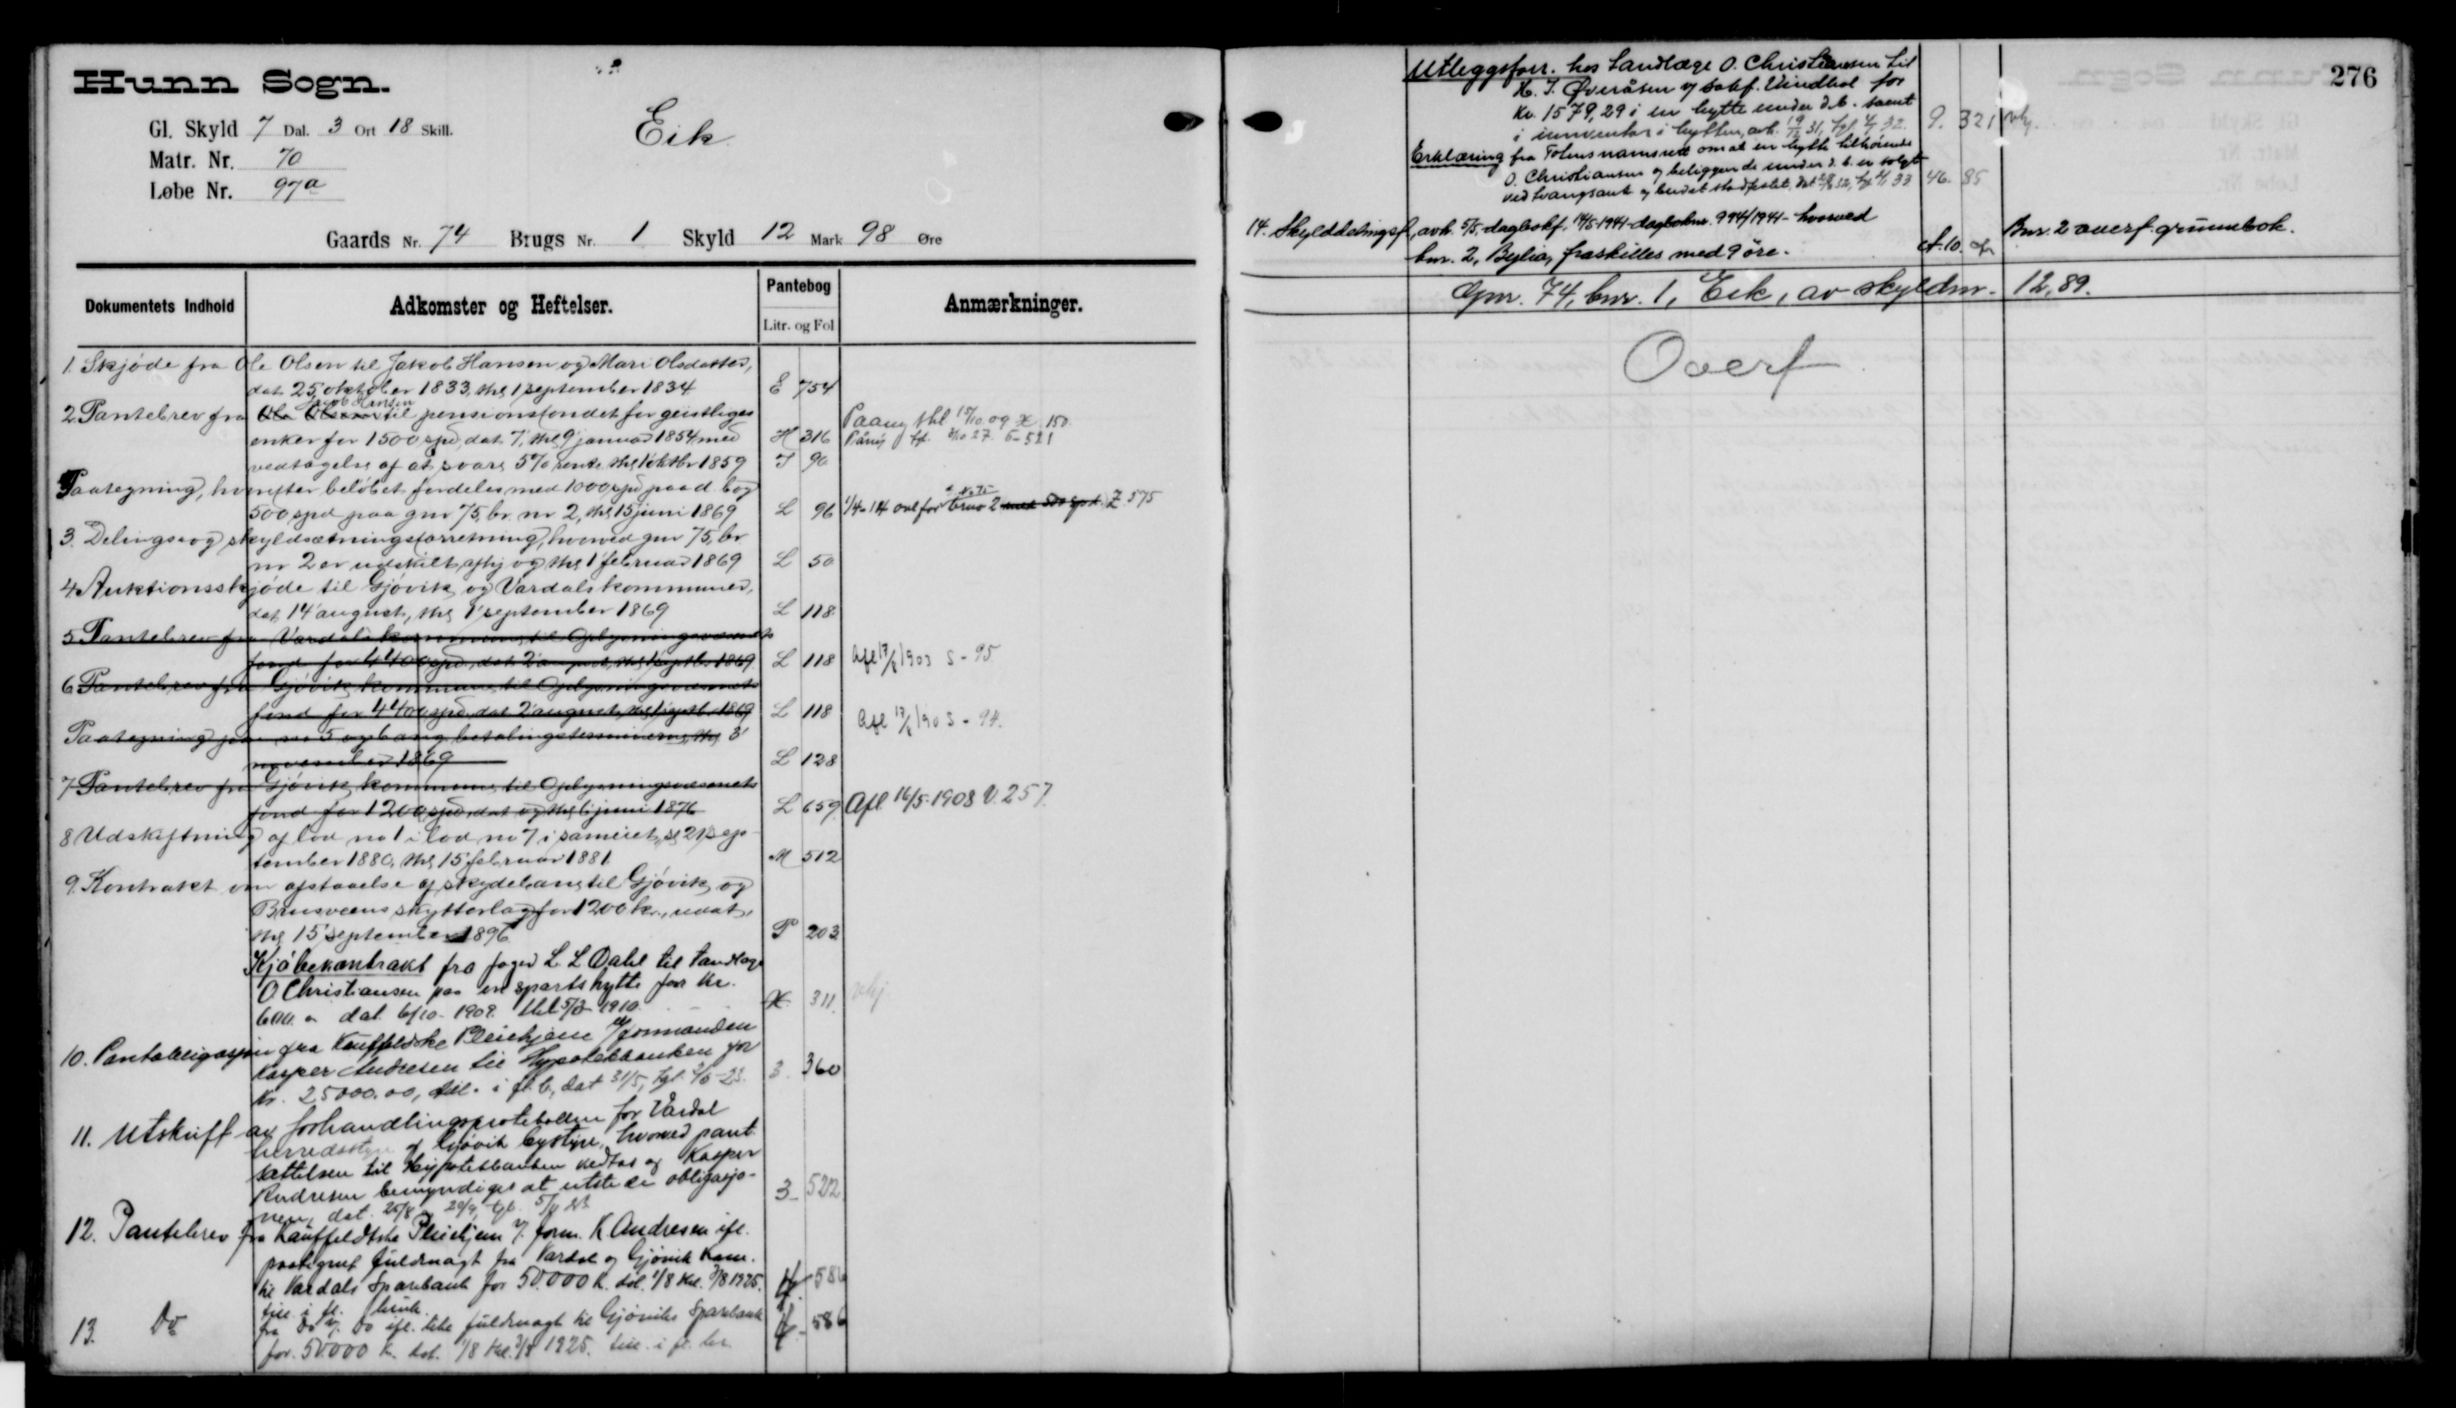 Hunn Sogn.
Gl. Skyld 7 Dal. 3 Ort 18 Skill.
Matr. Nr. 70
Løbe Nr. 97a
Eik
Gaards Nr. 74 Brugs Nr. 1 Skyld 12 Mark 98 Øre
Dokumentets Indhold Adkomster og Heftelser. Pantebog Anmærkninger.
Litr. og Fol
1. Skjøde fra Ole Olsen til Jakob Hansen og Mari Olsdatter,
dat. 25 oktober 1833, thl 1 september 1834 E 754
Jacob Hansen
2. Pantebrev fra Ole Olsen til pensionsfondet for geistliges Paateg thl 15/10 09 X. 150.
enker for 1500 spd, dat. 7, thl 9 januar 1854 med H 316 Påteg tgl. 27. 6-521
vedtagelse af at svare 5% rente thl 1 oktbr 1859 I 90
Paategning, hvorefter beløbet fordeles med 1000 spd paa d. b og
500 spd paa gnr 75, br. nr 2, thl 15 juni 1869 L 96 bruo 2 med 500 spd. Z 575
3. Delings og skyldsætningsforretning, hvorved gnr 75, br
nr 2 er udskilt, afhj og thl 1 februar 1869 L 50
4. Auktionsskjøde til Gjøvik og Vardals kommuner,
dat 14 august, thl 1 september 1869 L 118
5. Pantebrev fra Vardals kommune til Oplysningsvæsnets
fond for 4400 spd, dat. 2 august, thl 1 septbr 1869 L 118 Afl 17/8 1903 S - 95
6. Pantebrev fra Gjøvik kommune til Oplysningsvæsnets
fond for 4400 spd, dat 2 august, thl 1 septb. 1869 L 118 Afl 17/8 1903 S - 94.
Paategning paa nr 5 ang betalingsterminerne, thl 3
november 1869 L 128
7. Pantebrev fra Gjøvik kommune til Oplysningsvæsnets
fond for 1200 spd, dat og thl 6 juni 1876 L 659 Afl. 16/5 1908 V. 257.
8. Udskiftning af lod no 1 i lod no 7 i sameiet, sl 21 sep-
tember 1880, thl 15 februar 1881 M 512
9. Kontrakt om afstaaelse af skydebane til Gjøvik og
Brusveens skytterlag for 1200 kr., udat.
thl 15 september 1896 P 203
Kjøbekontrakt fra foged L. L. Dahl til tandlæge
O Christiansen paa en sportshytte for kr.
600. dat. 6/10 1909. thl 5/2 1910. X. 311. vhj
10. Pantobligasjon fra Kauffeldtske Pleiehjem v/formanden
Kasper Andresen til Hypotekbanken for
kr. 25000.00, till. i fl. b, dat 31/5, tgl. 23. 3. 360
11. Utskrift av forhandlingsprotokollen for Vardal
herredsstyre og Gjøvik bystyre, hvorved pant
sættelsen til Hypotekbanken vedtas og Kasper
Andresen bemyndiges at utstede obligasjo-
nen, dat. 25/8 3. 522
12. Pantebrev fra Kauffeldtske Pleiehjem v. form. K. Andresen ifl.
paategnet fuldmagt fra Vardal og Gjøvik kom.
til Vardals Sparebank for 50.000 k. dat. 1/8 thl. 3/8 1925. 586
till i fl. bruk.
13. Do fra Do v. Do ifl. fuldmagt til Gjøviks Sparebank 586
for 50.000 k. dat. 1/8 thl. 3/8 1925. till. i fl. br.
276
Utleggsforr. hos tandlæge O. Christiansen til
H. T. Øveråsen og sakf. Vindhol for
kr. 1579,29 i en hytte under d.b. samt
i inventar i hytten, avh. 19/12 31, tgl. 32. 9. 321 vhj.
Erklæring fra Totens namsrett om at en hytte tilhørende
O. Christiansen og beliggende under d. b. er solgt
ved tvangsauk og budet stadfestet, 33 46. 85
14. Skylddelingsf, avh. 5/5, dagbokf. 14/5-1941-dagboknr. 994/1941- hvorved Bnr. 2 overf. grunnbok.
bnr. 2, Bylia, fraskilles med 9 øre. A. 10.
Gnr. 74, bnr. 1, Eik, av skyldm. 12,89.
Overf